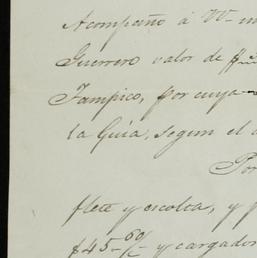 Acompaño á VV
Guerrero valor de
Tampico, por cuya
la Guia, segun el
Por
flete y escolta, y
$45- 60/ y cargador